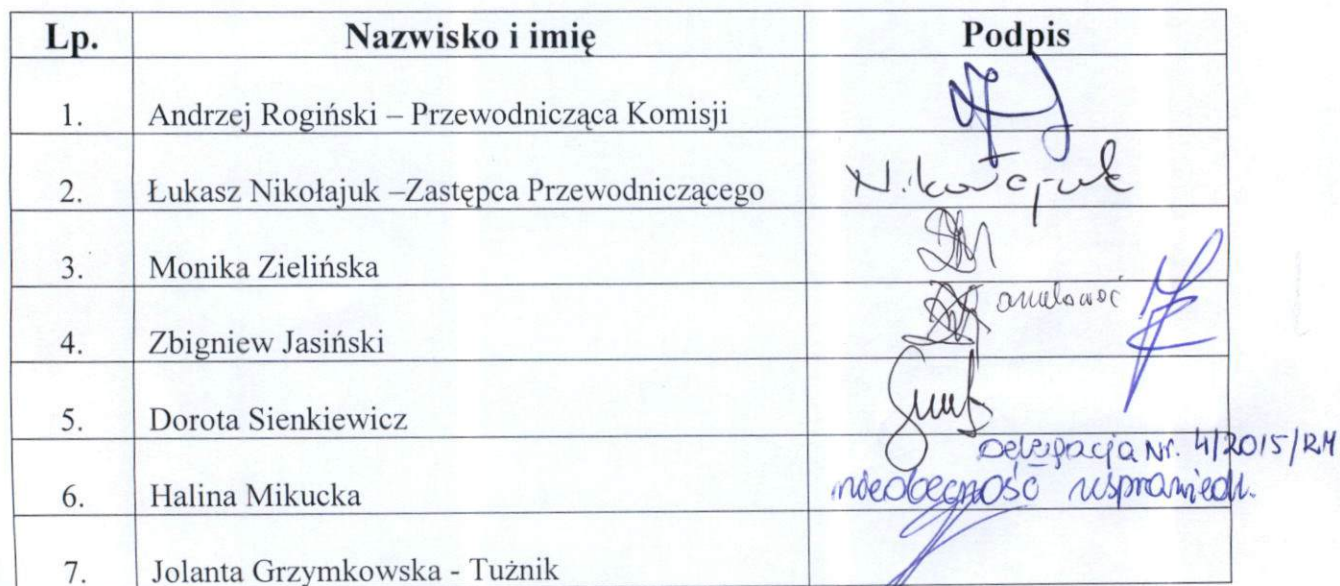 Lp. Nazwisko i imię Podpis
1. Andrzej Rogiński – Przewodnicząca Komisji
2. Łukasz Nikołajuk –Zastępca Przewodniczącego Nikołajuk
3. Monika Zielińska
4. Zbigniew Jasiński
5. Dorota Sienkiewicz
Delegacja Nr. 4/2015/RM
6. Halina Mikucka nieobecność usprawiedl.
7. Jolanta Grzymkowska - Tużnik